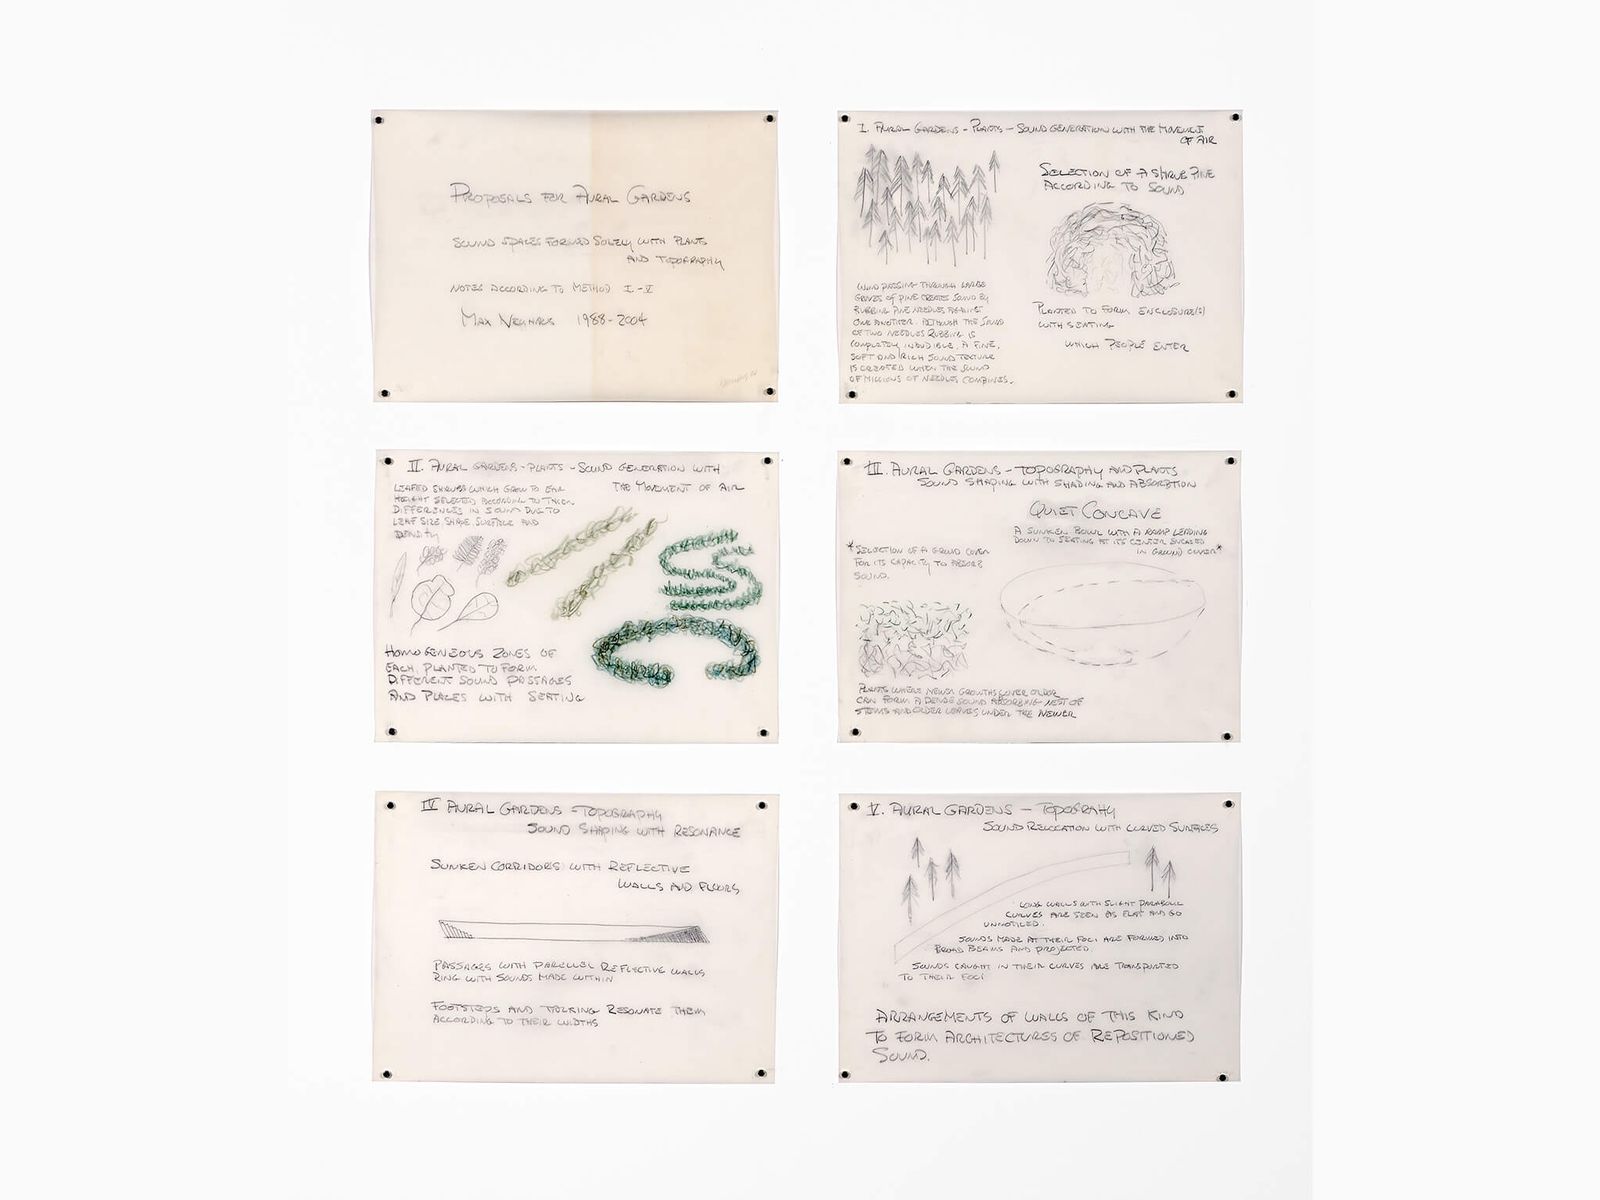 PROPOSALS FOR AURAL GARDENS
SOUND SPACES FORMED SOLELY WITH PLANTS
AND TOPOGRAPHY
NOTES ACCORDING TO METHOD I.-V
MAX NEUHAUS 1988-2004
I. AURAL GARDENS - PLANTS - SOUND GENERATION WITH THE MOVEMENT
OF AIR
SELECTION OF A SHRUB PINE
ACCORDING TO SOUND
WIND PASSING THROUGH LARGE
GROVES OF PINE CREATES SOUND BY
RUBBING PINE NEEDLES AGAINST
ONE ANOTHER. ALTHOUGH THE SOUND
OF TWO NEEDLES RUBBING IS
COMPLETELY INAUDIBLE, A FINE,
SOFT AND RICH SOUND TEXTURE
IS CREATED WHEN THE SOUND
OF MILLIONS OF NEEDLES COMBINES.
PLANTED TO FORM ENCLOSURE(S)
WITH SEATING
WHICH PEOPLE ENTER
II. AURAL GARDENS - PLANTS - SOUND GENERATION WITH
THE MOVEMENT OF AIR
LEAFED SHRUBS WHICH GROW TO EAR
HEIGHT SELECTED ACCORDING TO THEIR
DIFFERENCES IN SOUND DUE TO
LEAF SIZE, SHAPE, SURFACE AND
DENSITY
HOMOGENEOUS ZONES OF
EACH, PLANTED TO FORM
DIFFERENT SOUND PASSAGES
AND PLACES WITH SEATING
III. AURAL GARDENS - TOPOGRAPHY AND PLANTS
SOUND SHAPING WITH SHADING AND ABSORBTION
QUIET CONCAVE
A SUNKEN BOWL WITH A RAMP LEADING
DOWN TO SEATING AT ITS CENTER ENCASED
IN GROUND COVER*
*SELECTION OF A GROUND COVER
FOR ITS CAPACITY TO ABSORB
SOUND.
PLANTS WHERE NEWER GROWTHS COVER OLDER
CAN FORM A DENSE SOUND ABSORBING NEST OF
STEMS AND OLDER LEAVES UNDER THE NEWER
IV AURAL GARDENS - TOPOGRAPHY
SOUND SHAPING WITH RESONANCE
SUNKEN CORRIDORS WITH REFLECTIVE
WALLS AND FLOORS
PASSAGES WITH PARELLEL REFLECTIVE WALLS
RING WITH SOUNDS MADE WITHIN
FOOTSTEPS AND TALKING RESONATE THEM
ACCORDING TO THEIR WIDTHS
V. AURAL GARDENS - TOPOGRAHY
SOUND RELOCATION WITH CURVED SURFACES
LONG WALLS WITH SLIGHT PARABOLIC
CURVES ARE SEEN AS FLAT AND GO
UNNOTICED.
SOUNDS MADE AT THEIR FOCI ARE FORMED INTO
BROAD BEAMS AND PROJECTED.
SOUNDS CAUGHT IN THEIR CURVES ARE TRANSPORTED
TO THEIR FOCI
ARRANGEMENTS OF WALLS OF THIS KIND
TO FORM ARCHITECTURES OF REPOSITIONED
SOUND.